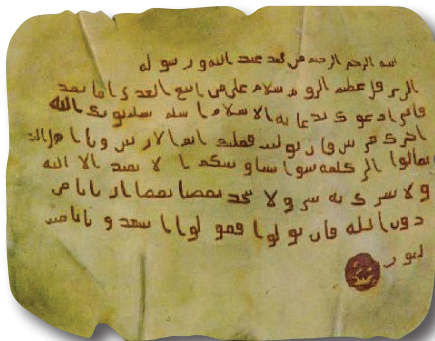 بسم الله الرحمن الرحيم من محمد عبد الله ورسوله
الى هرقل عظيم الروم سلام على من اتبع الهدى اما بعد
فانى ادعوك بدعاية الاسلام اسلم تسلم يوتك الله
اجرك مرتين فان توليت فعليك اثم الاريسيين ويا اهل
تعالوا الى كلمة سوا بيننا وبينكم الا نعبد الا الله
ولا نشرك به شيئا ولا يتخذ بعضنا بعضا اربابا من
دون الله فان تولوا فقولوا اشهدوا بانا مس
لمون